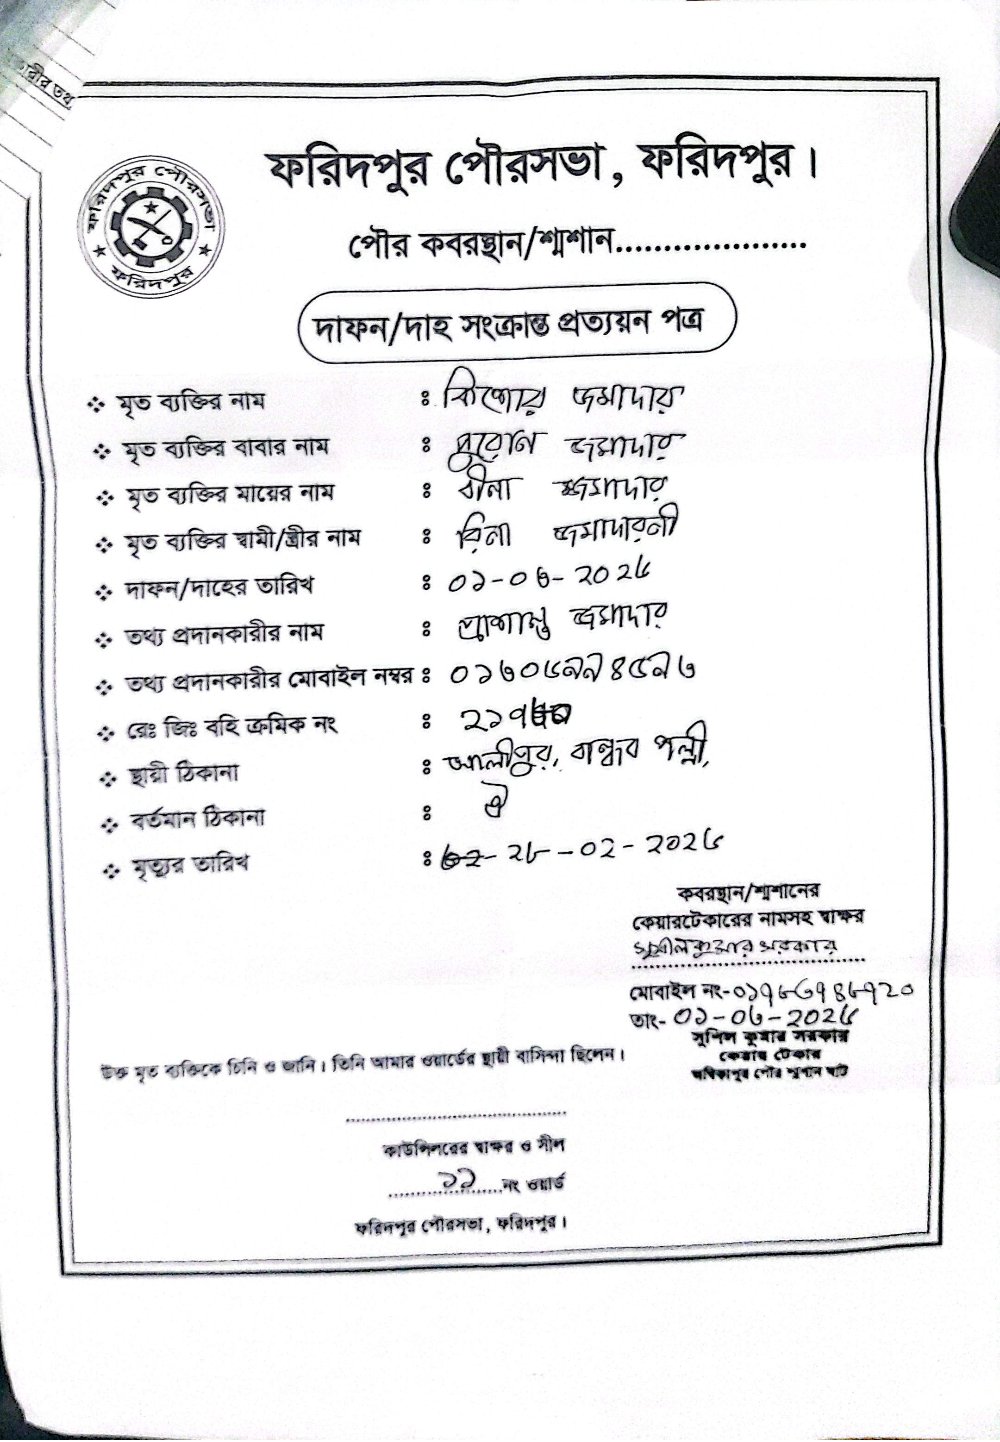 ারীর তথ্য
ফরিদপুর পৌরসভা, ফরিদপুর।
ফরিদপুর পৌরসভা
ফরিদপুর
পৌর কবরস্থান/শ্মশান....................
দাফন/দাহ সংক্রান্ত প্রত্যয়ন পত্র
❖ মৃত ব্যক্তির নাম : কিশোর জমাদার
❖ মৃত ব্যক্তির বাবার নাম : পুরোন জমাদার
❖ মৃত ব্যক্তির মায়ের নাম : বীনা জমাদার
❖ মৃত ব্যক্তির স্বামী/স্ত্রীর নাম : রিনা জমাদারনী
❖ দাফন/দাহের তারিখ : ০১-০৬-২০২৫
❖ তথ্য প্রদানকারীর নাম : প্রশান্ত জমাদার
❖ তথ্য প্রদানকারীর মোবাইল নম্বর :
❖ রেঃ জিঃ বহি ক্রমিক নং :
❖ স্থায়ী ঠিকানা : আলীপুর, বান্ধব পল্লী,
❖ বর্তমান ঠিকানা : ঐ
❖ মৃত্যুর তারিখ :
কবরস্থান/শ্মশানের
কেয়ারটেকারের নামসহ স্বাক্ষর
সুশীল কুমার সরকার
মোবাইল নং-
তাং- ০১-০৬-২০২৫
সুশিল কুমার সরকার
কেয়ার টেকার
অম্বিকাপুর পৌর শ্মশান ঘাট
উক্ত মৃত ব্যক্তিকে চিনি ও জানি। তিনি আমার ওয়ার্ডের স্থায়ী বাসিন্দা ছিলেন।
কাউন্সিলরের স্বাক্ষর ও সীল
১১ নং ওয়ার্ড
ফরিদপুর পৌরসভা, ফরিদপুর।